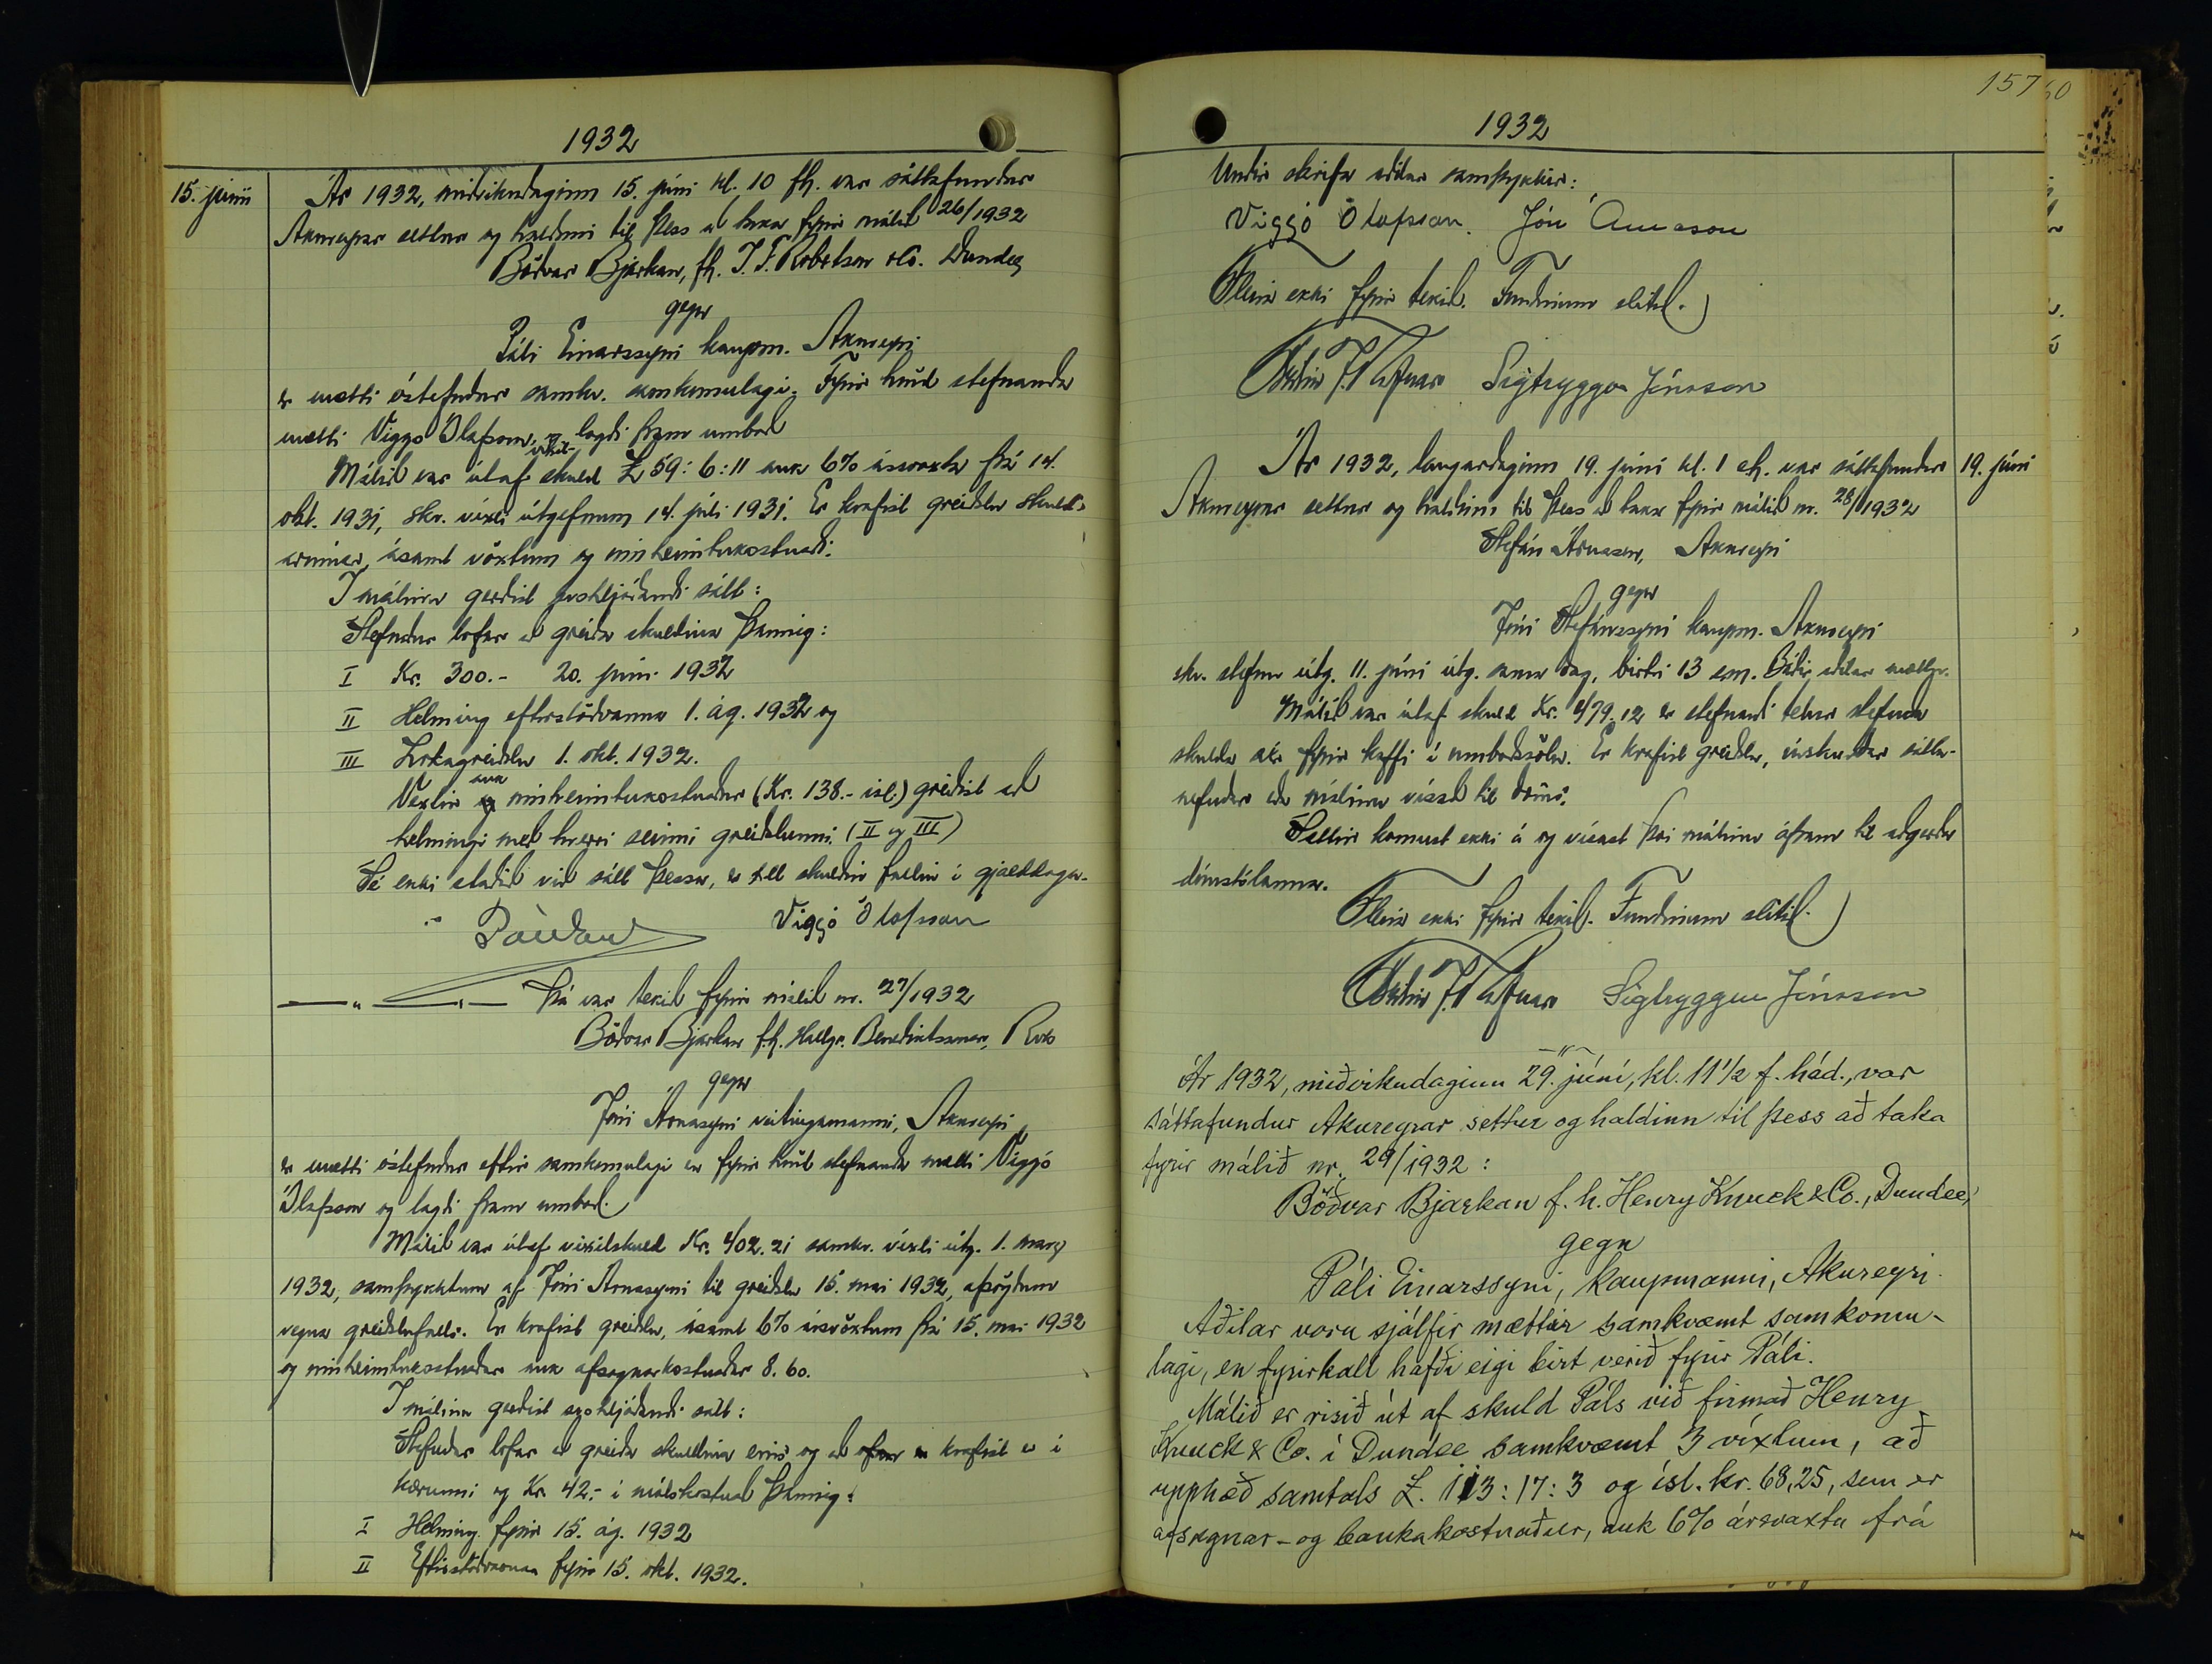 1932
15. júní
Ár 1932, miðvikudaginn 15. júní kl. 10 fh. var sáttafundur
Akureyrar settur og haldinn til þess að taka fyrir málið 26/1932
Böðvar Bjarkan, fh. J. F. Robertson & Co. Dundee
gegn
Páli Einarssyni kaupm. Akureyri
er mætti óstefndur samkv. samkomulagi. Fyrir hönd stefnanda
mætti Viggo Ólafsson, og lagði fram umboð
Málið var útaf víxil-skuld £ 59:6:11 auk 6% ársvaxta frá 14.
okt. 1931, skv. víxli útgefnum 14. júlí 1931. Er krafist greiðslu skuld-
arinnar, ásamt vöxtum og innheimtukostnaði.
Í málinu gerðist svohljóðandi sátt:
Stefndur lofar að greiða skuldina þannig:
I Kr. 300.- 20. júní 1932
II Helming eftirstöðvanna 1. ág. 1932 og
III Lokagreiðslu 1. okt. 1932.
Vextir auk og innheimtukostnaður (Kr. 138.- ísl.) greiðist að
helmingi með hverri seinni greiðslunni. (II og III)
Sé ekki staðið við sátt þessa, er öll skuldin fallin í gjalddaga.
Viggó Ólafsson
— „ — „ — Þá var tekið fyrir málið nr. 27/1932
Böðvar Bjarkan f.h. Hallgr. Benediktssonar, Rvk
gegn
Jóni Árnasyni veitingamanni, Akureyri
er mætti óstefndur eftir samkomulagi en fyrir hönd stefnanda mætti Viggó
Ólafsson og lagði fram umboð.
Málið var útaf víxilskuld Kr. 402.21 samkv. víxli útg. 1. marz
1932, samþykktum af Jóni Árnasyni til greiðslu 15. maí 1932, afsögðum
vegna greiðslufalls. Er krafist greiðslu, ásamt 6% ársvöxtum frá 15. maí 1932
og innheimtukostnaðar auk afsagnarkostnaðar 8.60.
Í málinu gerðist svohljóðandi sátt:
Stefndur lofar að greiða skuldina eins og að krafist er í
kærunni og Kr. 42.- í málskostnað þannig:
I Helming fyrir 15. ág. 1932
II Eftirstöðvarnar fyrir 15. okt. 1932.
157
60
1932
Undir skrifa aðilar samþykkir:
Viggó Ólafsson. Jón Árnason
Fleira ekki fyrir tekið. Fundinum slitið.
Sigtryggur Jónsson
Ár 1932, laugardaginn 19. júní kl. 1 eh. var sáttafundur
19. júní
Akureyrar settur og haldinn til þess að taka fyrir málið nr. 28/1932
Stefán Árnason, Akureyri
gegn
Jóni Stefánssyni kaupm. Akureyri
skv. stefnu útg. 11. júní útg. sama dag, birtri 13 s.m. Báðir aðilar mættir.
Málið var útaf skuld Kr. 479.12 er stefnandi telur stefnda
skulda sér fyrir kaffi í umboðssölu. Er krafist greiðslu, úrskurðar sátta-
nefndar eða málinu vísað til dóms.
Sættir komust ekki á og vísast því málinu áfram til aðgerða
dómstólanna.
Fleira ekki fyrir tekið. Fundinum slitið.
Sigtryggur Jónsson
—"—
Ár 1932, miðvikudaginn 29. júní, kl. 11½ f. hád., var
sáttafundur Akureyrar settur og haldinn til þess að taka
fyrir málið nr. 29/1932:
Böðvar Bjarkan f. h. Henry Knuck & Co., Dundee,
gegn
Páli Einarssyni, kaupmanni, Akureyri.
Aðilar voru sjálfir mættir samkvæmt samkomu-
lagi, en fyrirkall hafði eigi birt verið fyrir Páli.
Málið er risið út af skuld Páls við firmað Henry
Knuck & Co. í Dundee samkvæmt 3 víxlum, að
upphæð samtals £. 113:17:3 og ísl. kr. 68,25, sem er
afsagnar- og bankakostnaður, auk 6% ársvaxta frá